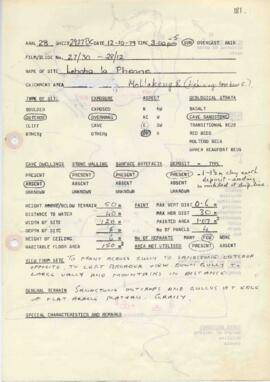 ARAL 28 UNIT 2927BC DATE 12-10-79 TIME 3:00pm SUN OVERCAST RAIN
FILM/BLOC No. 27/30 - 28/12
NAME OF SITE Lehaha la Phenne
CATCHMENT AREA Mohlakeng R
TYPE OF SITE EXPOSURE ASPECT GEOLOGICAL STRATA
BOULDER EXPOSED N BASALT
OUTCROP OVERHANG CAVE SANDSTONE
CLIFF CAVE TRANSITIONAL BEDS
OTHERS OTHERS RED BEDS
MOLTENO BEDS
UPPER BEAUFORT BEDS
CAVE DWELLINGS STONE WALLING SURFACE ARTEFACTS DEPOSIT - TYPE
PRESENT PRESENT PRESENT PRESENT
ABSENT ABSENT ABSENT ABSENT
UNKNOWN UNKNOWN UNKNOWN UNKNOWN
HEIGHT ABOVE/BELOW TERRAIN 50 M PAINT MAX VERT DIST 0.6 M
DISTANCE TO WATER 40 M MAX HOR DIST 30 M
WIDTH OF SITE 128 M PAINTED AREA
DEPTH OF SITE 8 M No OF PANELS 4
HEIGHT OF CEILING 6 M No OF REMNANTS MANY FEW NONE
HABITABLE FLOOR AREA 150 M² AREA NOT UTILISED PRESENT ABSENT
VIEW FROM SITE TO FRONT ACROSS GULLY TO SANDSTONE OUTCROP
OPPOSITE, TO LEFT BROADER VIEW DOWN GULLY TO
LARGE VALLEY AND MOUNTAINS IN DISTANCE
GENERAL TERRAIN SANDSTONE OUTCROPS AND GULLYS AT EDGE
OF FLAT ARABLE PLATEAU. GRASSY.
SPECIAL CHARACTERISTICS AND REMARKS